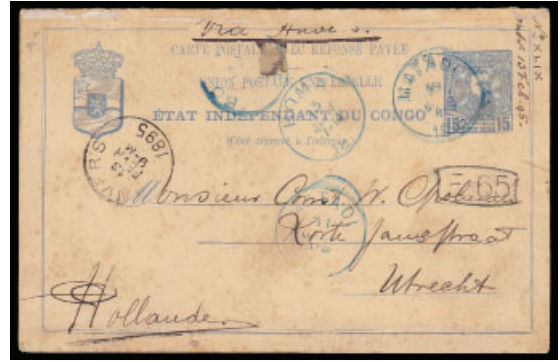 Via Anvers.
CARTE POSTALE AVEC RÉPONSE PAYÉE
UNION POSTALE UNIVERSELLE
ÉTAT INDÉPENDANT DU CONGO
(Côté réservé à l'adresse)
MATADI
15 15
BOMA
ANVERS
1895
F.65
Monsieur Const. W.
Korte Jansstraat
Utrecht
Hollande.
No XLIX
10 Feb. 95.